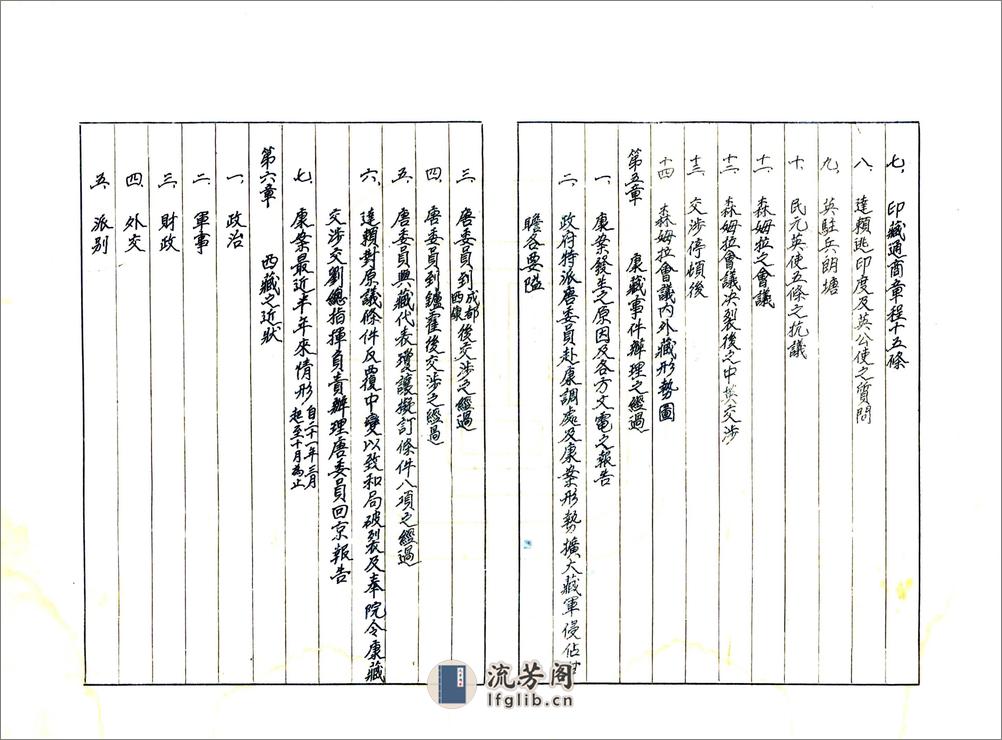 七、印藏通商章程十五條
八、達賴逃印度及英公使之質問
九、英駐兵朗塘
十、民元英使五條之抗議
十一、森姆拉之會議
十二、森姆拉會議決裂後之中英交涉
十三、交涉停頓後
十四、森姆拉會議内外藏形勢圖
第五章 康藏事件辦理之經過
一、康案發生之原因及各方文電之報告
二、政府特派唐委員赴康調處及康案形勢擴大藏軍侵佔甘
瞻各要隘
三、唐委員到成都西康後交涉之經過
四、唐委員到鑪霍後交涉之經過
五、唐委員與藏代表瓊讓擬訂條件八項之經過
六、達賴對原議條件反覆中變以致和局破裂及奉院令康藏
交涉交劉總指揮負責辦理唐委員回京報告
七、康案最近半年來情形自二十一年三月起至十月為止
第六章 西藏之近狀
一、政治
二、軍事
三、財政
四、外交
五、派别
流芳阁
lfglib.cn